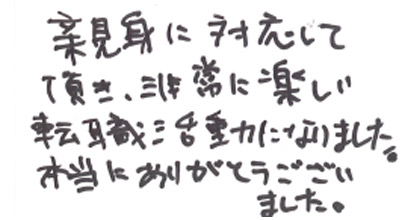 親見身に対応して
頂き、非常に楽しい
転職活動になりました。
本当にありがとうござい
ました。